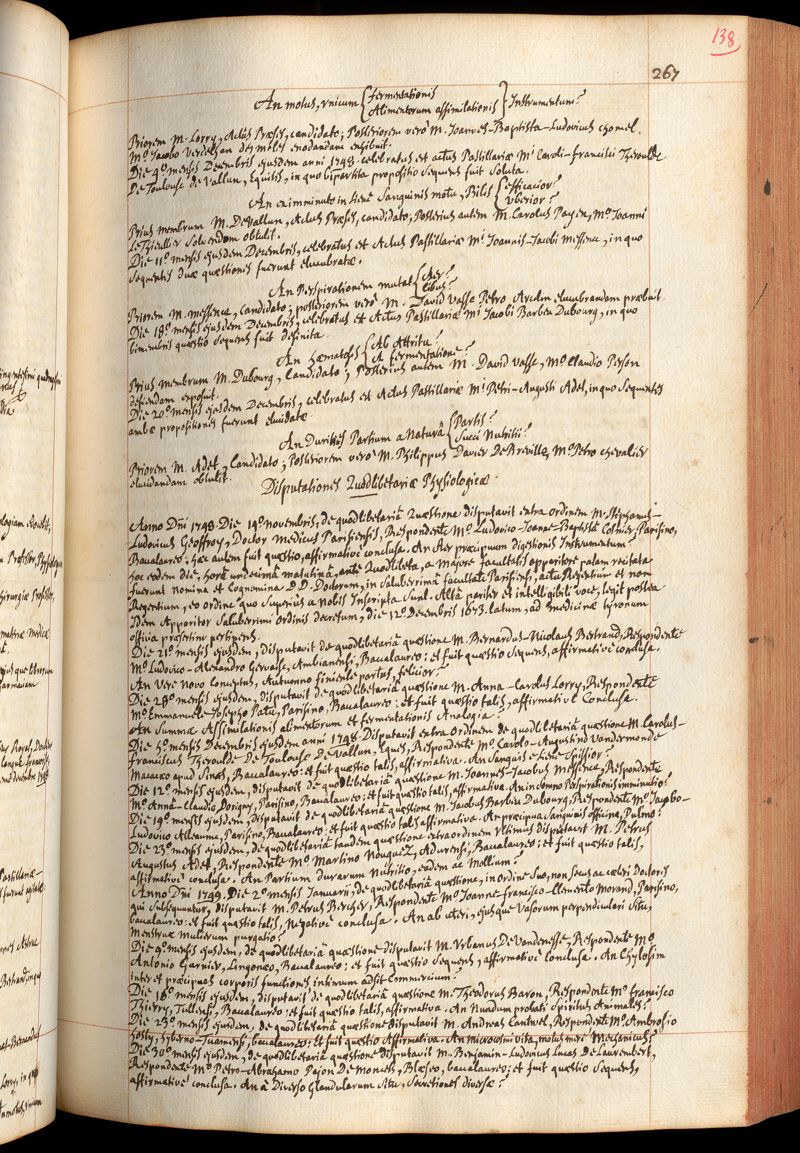 138
267
An motus, unicum { fermentationis / Alimentorum assimilationis } Instrumentum?
Priorem M. Lorry, Actûs Præses, candidato; Posteriorem verò M. Joannes-Baptista-Ludovicus Chomel,
M° Jacobo Verdelhan des moles enodandam exhibuit.
Die 9° mensis Decembris ejusdem anni 1748. celebratus et actus Pastillariæ Mi Caroli-Francisci Theroulde
De Toulouse de Vallun, Equitis, in quo bipartita propositio sequens fuit soluta.
An ex imminuto in Liene Sanguinis motu, Bilis { efficacior? / Uberior?
Prius membrum M. De Vallun, Actus Præses, candidato, Posterius autem M. Carolus Payen, M° Joanni
Le Thieullier Solvendum obtulit.
Die 11° mensis ejusdem Decembris, celebratus et Actus Pastillariæ Mi Joannis-Jacobi Messence, in quo
Sequentes duæ quæstiones fuerunt elucubratæ.
An Perspirationem mutat { Aer? / Cibus?
Priorem M. Messence, Candidato; posteriorem verò M. David Vasse Petro Arcelin elucubrandam præbuit.
Die 18° mensis ejusdem Decembris, celebratus et Actus Pastillariæ Mi Jacobi Barbeu Dubourg, in quo
bimembris quæstio sequens fuit definita.
An hæmatosis { Ab Attritu? / A fermentatione?
Prius membrum M. Dubourg, Candidato; Posterius autem M. David Vasse, M° Claudio Person
defendum exposuit.
Die 20° mensis ejusdem Decembris, celebratus et Actus Pastillariæ Mi Petri-Augusti Adet, in quo Sequentes
ambæ propositiones fuerunt elucidatæ.
An Durities Partium a Naturâ { Partis? / Succi Nutritii?
Priorem M. Adet, Candidato; Posteriorem verò M. Philippus Davier De Breville, M° Petro Chevalier
elucidandam obtulit.
Disputationes Quodlibetariæ Physiologicæ.
Anno Dñi 1748. Die 14° novembris, de quodlibetariâ Quæstione disputavit extra ordinem M. Stephanus-
Ludovicus Geoffroy, Doctor Medicus Parisiensis, Respondente M° Ludovico-Joanne-Baptistâ Cosnier, Parisino,
Baccalaureo: hæc autem fuit quæstio, affirmativè conclusa. An Aer præcipuum digestionis Instrumentum.
hoc eodem die, horâ undecimâ matutinâ, ante Quodlibeta, a majore facultatis apparitore palam recitata
fuerunt nomina et Cognomina D.D. Doctorum, in Saluberrimâ facultate Parisiensi, actu Regentium et non
Regentium, eo ordine quo Superiùs a nobis Inscripta Sunt. Altâ pariter et intelligibili voce, legit postea
Idem Apparitor Saluberrimi Ordinis decretum, die 12° decembris 1673. latum, ad medicinæ tyronum
officia præsertim pertinens.
Die 21° mensis ejusdem, disputavit de quodlibetariâ quæstione M. Bernardus-Nicolaus Bertrand, Respondente
M° Ludovico-Alexandro Gervaise, Ambianensi, Baccalaureo: et fuit quæstio sequens, affirmativè conclusa.
An Vere novo Conceptus, Autumno finiente partus, felicior?
Die 28° mensis ejusdem, disputavit de quodlibetariâ quæstione M. Anna-Carolus Lorry, Respondente
M° Emmanuele-Josepho Patu, Parisino, Baccalaureo: et fuit quæstio talis, affirmativè Conclusa.
An Summa Assimilationis alimentorum et fermentationis Analogia?
Die 5° mensis Decembris ejusdem anni 1748. Disputavit extra Ordinem de quodlibetariâ quæstione M. Carolus-
Franciscus Theroulde De Toulouse De Vallun, Eques, Respondente M° Carolo-Augustino Vandermonde
Macaao apud Sinas, Baccalaureo: et fuit quæstio talis, affirmativa. An Sanguis e Liene Spissior?
Die 12° mensis ejusdem, disputavit de quodlibetariâ quæstione M. Joannes-Jacobus Messence, Respondente
M° Anna-Claudio Dorigny, Parisino, Baccalaureo: et fuit quæstio talis, affirmativa. An in Somno Perspirationis imminutio?
Die 19° mensis ejusdem, Disputavit de quodlibetariâ quæstione M. Jacobus Barbeu Dubourg, Respondente M° Jacobo-
Ludovico Alleaume, Parisino, Baccalaureo: et fuit quæstio talis affirmativa. An præcipua Sanguinis officina, Pulmo?
Die 23° mensis ejusdem, de quodlibetariâ tandem quæstione extraordinem Ultimus Disputavit M. Petrus
Augustus Adet, Respondente M° Martino Nouguez, Adurensi, Baccalaureo: et fuit quæstio talis,
affirmativè conclusa. An Partium durarum Nutritio, eadem ac Mollium?
Anno Dñi 1749. Die 2° mensis Januarii, de quodlibetariâ quæstione, in ordine Suo, non Secus ac cæteri Doctoris
qui Subsequuntur, disputavit M. Petrus Bercher, Respondente M° Joanne-Francisco-Clemente Morand, Parisino,
baccalaureo: et fuit quæstio talis, Negativè conclusa. An ab uteri, ejusque Vasorum perpendiculari Situ,
Menstrua Mulierum purgatio?
Die 9° mensis ejusdem, de quodlibetariâ quæstione disputavit M. Urbanus De Vandenesse, Respondente M°
Antonio Garnier, Lingonæo, Baccalaureo: et fuit quæstio Sequens, affirmativè conclusa. An Chylosim
inter et præcipuas corporis functiones intimum adsit Commercium?
Die 16° mensis ejusdem, disputavit de quodlibetariâ quæstione M. Theodorus Baron, Respondente M° Francisco
Thierry, Tullensi, Baccalaureo: et fuit quæstio talis, affirmativa. An Nundum probati Spiritus Animales?
Die 23° mensis ejusdem, de quodlibetariâ quæstione disputavit M. Andreas Cantwel, Respondente M° Ambrosio
hosty, hyberno-Tuamensi, baccalaureo: et fuit quæstio Affirmativa. An microcosmi vita, motus merè Mechanicus?
Die 30° mensis ejusdem, de quodlibetariâ quæstione disputavit M. Benjamin-Ludovicus Lucas De Laurembert,
Respondente M° Petro-Abrahamo Pajon De Moncets, Blæseo, baccalaureo; et fuit quæstio Sequens,
affirmativè conclusa. An a Diverso Glandularum Situ, Secretiones diversæ?